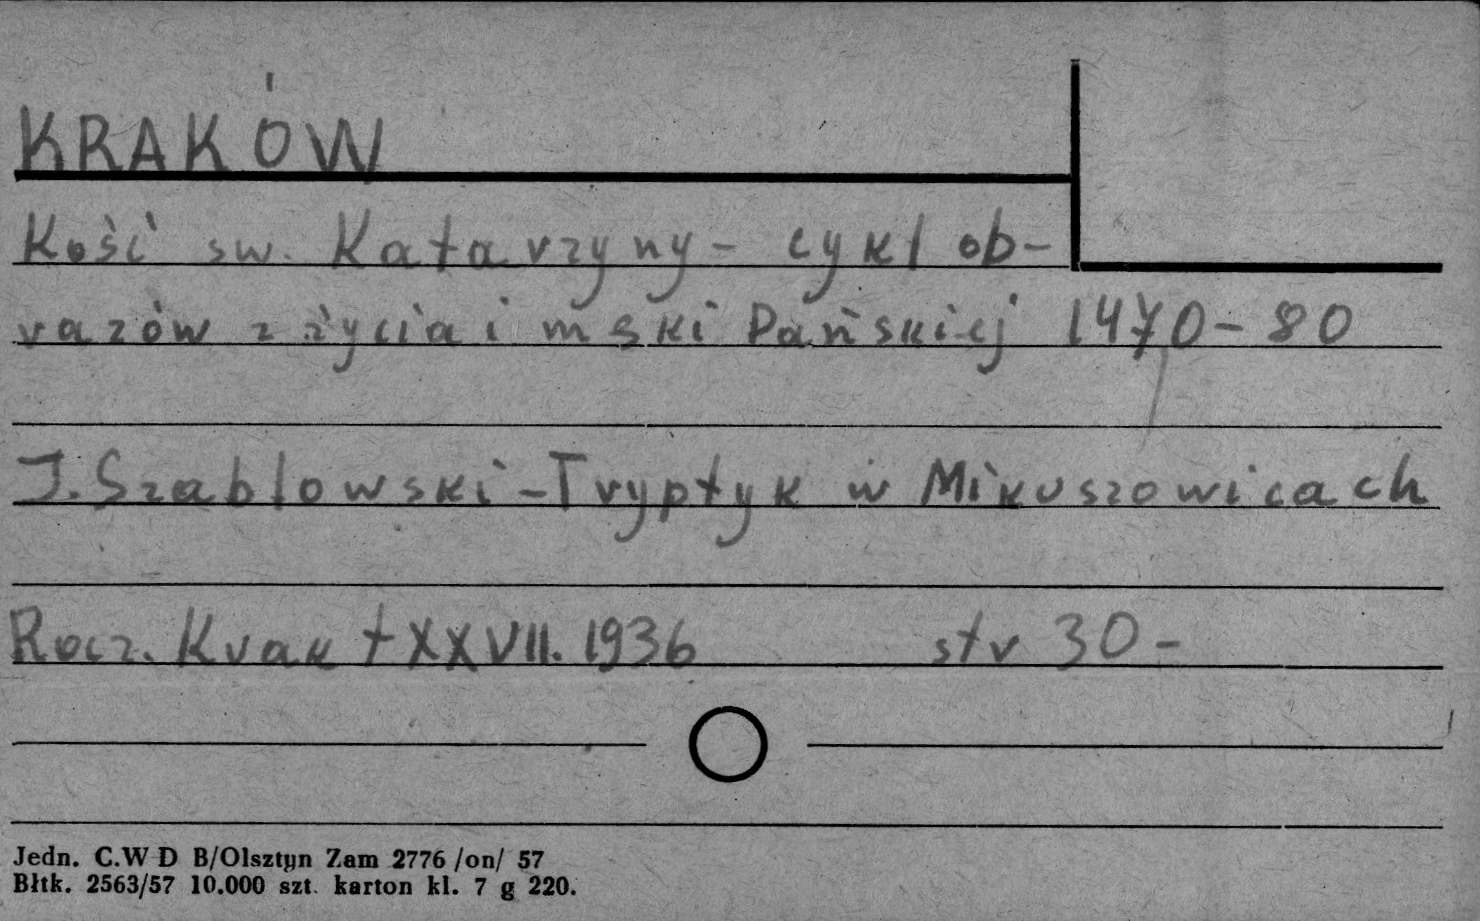 KRAKÓW
Kość sw. Katarzyny - cykl ob-
razów z życia i mski Pańskiej 1470-80
J. Szabłowski - Tryptyk w Mikuszowicach
Rocz. Krak t XXVII. 1936 str 30 -
Jedn. C.W D B/Olsztyn Zam 2776 /on/ 57
Błtk. 2563/57 10.000 szt. karton kl. 7 g 220.